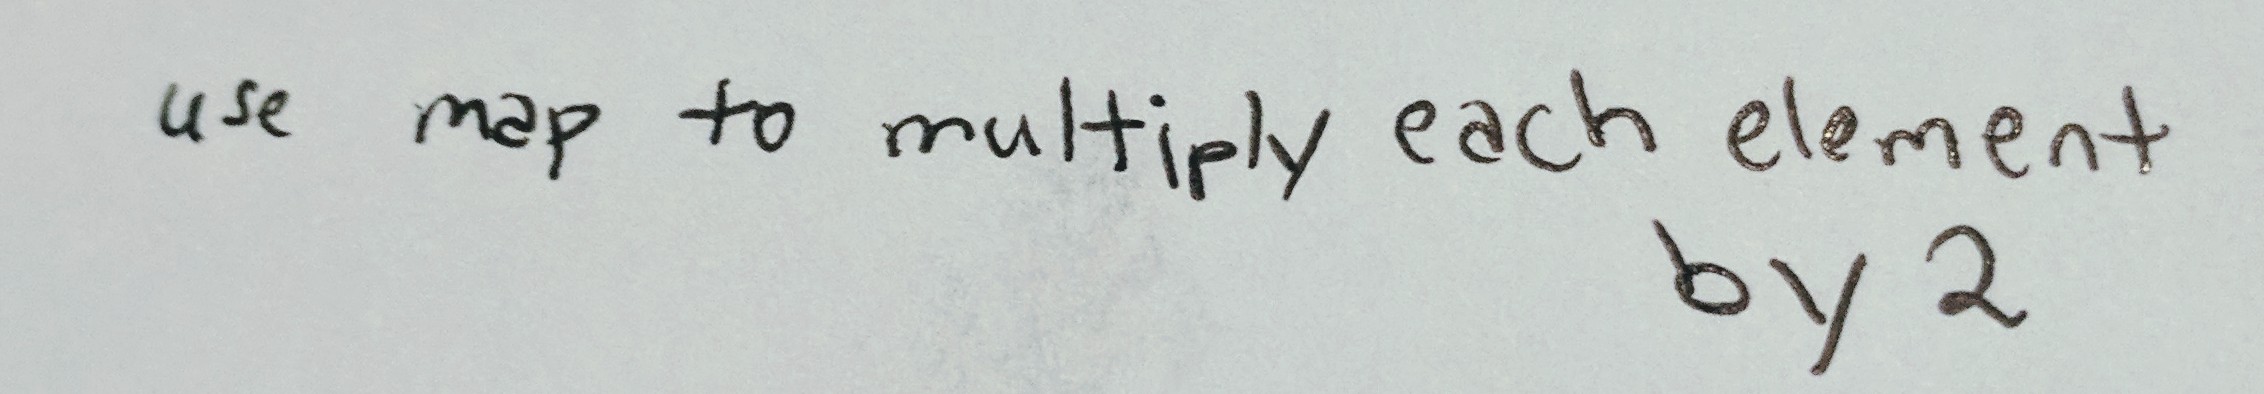 use map to multiply each element
by 2